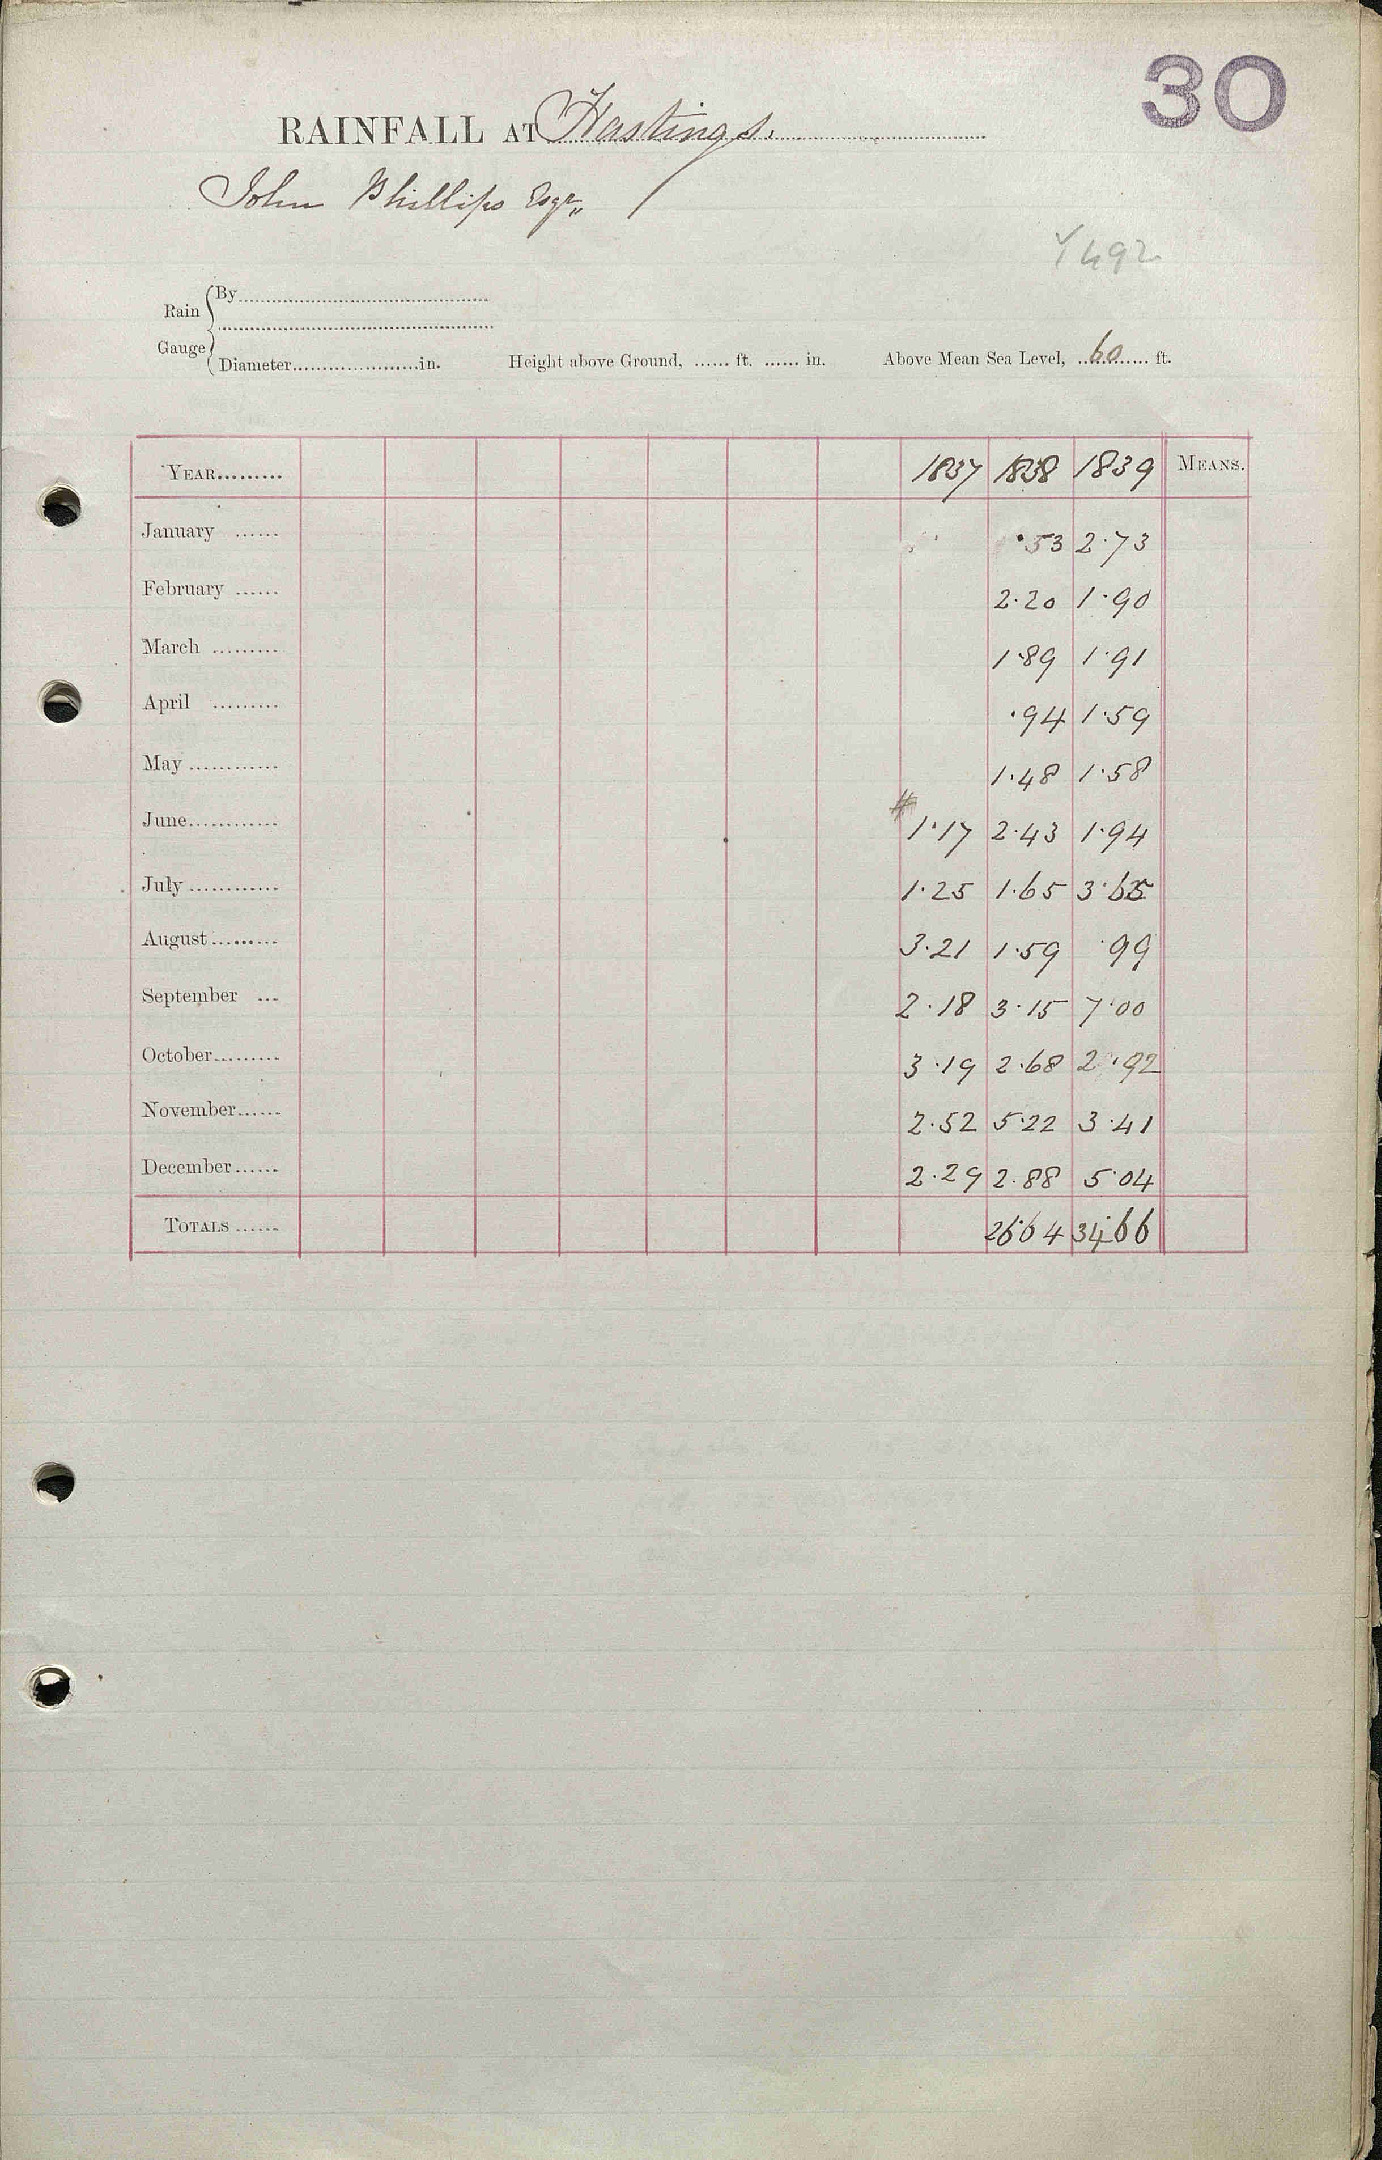 30
RAINFALL AT Hastings.
John Phillips Esqr
Y492
Rain Gauge
By
Diameter......in. Height above Ground, ...... ft. ...... in. Above Mean Sea Level, ...60... ft.
YEAR......... 1837 1838 1839 MEANS.
January ...... ·53 2·73
February ...... 2·20 1·90
March ......... 1·89 1·91
April ......... ·94 1·59
May ............ 1·48 1·58
June............ # 1·17 2·43 1·94
July ............ 1·25 1·65 3·65
August......... 3·21 1·59 ·99
September ... 2·18 3·15 7·00
October......... 3·19 2·68 2·92
November...... 2·52 5·22 3·41
December...... 2·29 2·88 5·04
TOTALS ...... 26·64 34·66